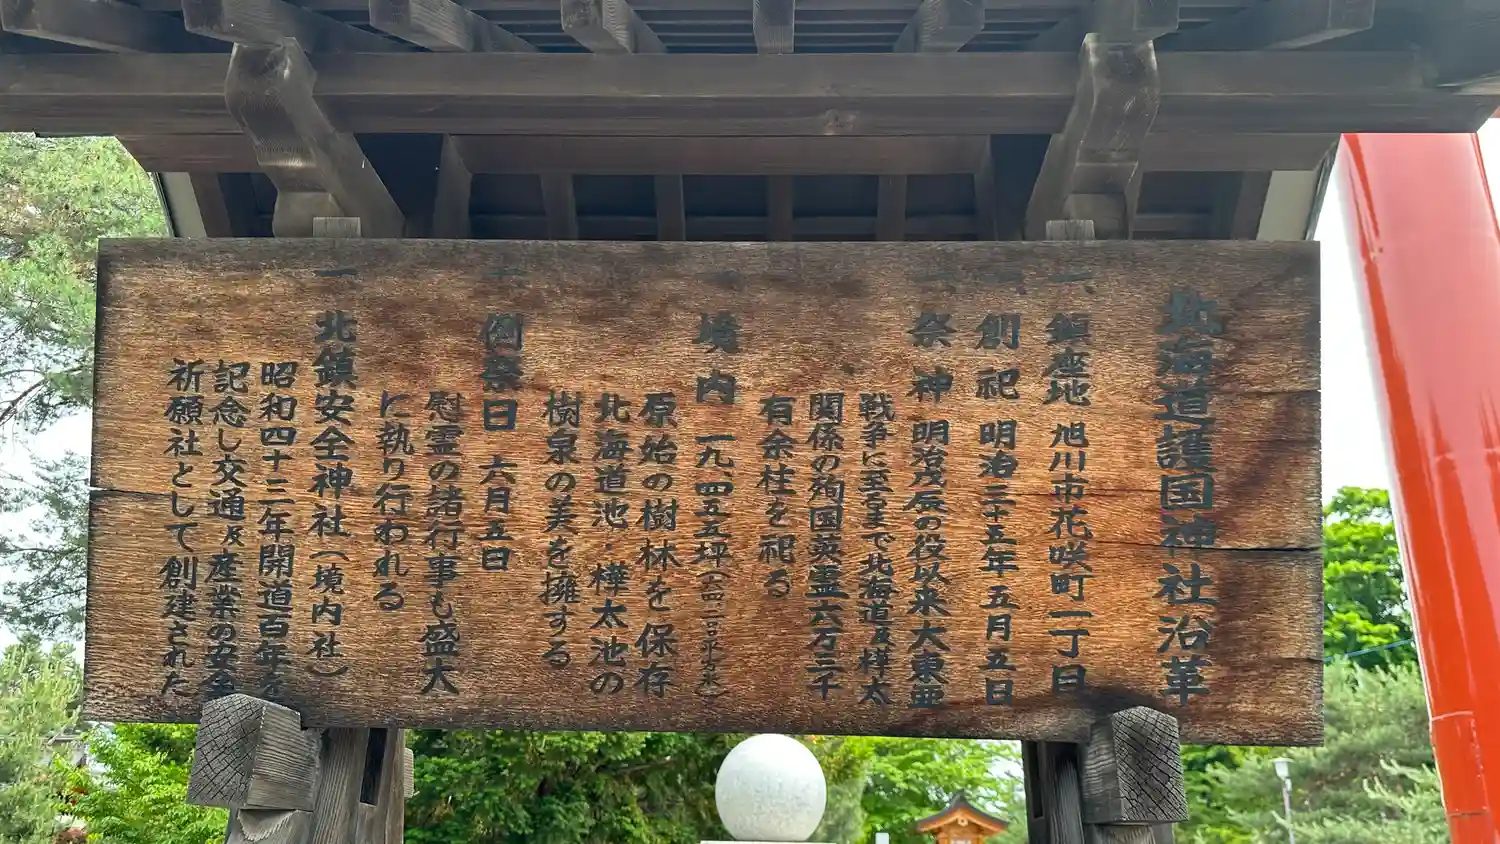 北海道護国神社沿革
一 鎮座地 旭川市花咲町一丁目
一 創祀 明治三十五年五月五日
一 祭神 明治戊辰の役以来大東亜
戦争に至るまで北海道及樺太
関係の殉国英霊六万三千
有余柱を祀る
一 境内 一九四五五坪(六四、二〇〇平方米)
原始の樹林を保存
北海道池・樺太池の
樹泉の美を擁する
一 例祭日 六月五日
慰霊の諸行事も盛大
に執り行われる
一 北鎮安全神社(境内社)
昭和四十三年開道百年を
記念し交通及産業の安全
祈願社として創建された